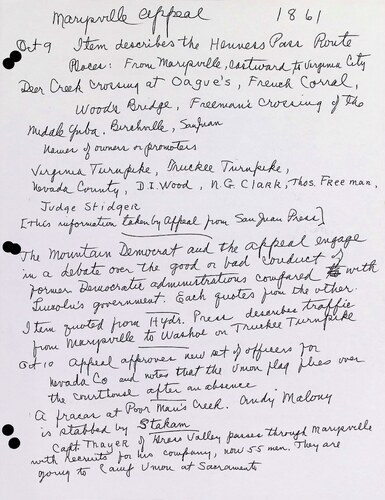 Marysville Appeal 1861
Oct 9 Item describes the Henness Pass Route
Places: From Marysville, Eastward to Virginia City
Deer Creek Crossing at Oague's, French Corral,
Woods Bridge, Freeman's Crossing of the
Middle Yuba, Birchville, San Juan
Names of owners or promoters
Virginia Turnpike, Truckee Turnpike,
Nevada County, D.I. Wood, N.G. Clark, Thos. Freeman,
Judge Stidger
[This information taken by Appeal from San Juan Press]
The Mountain Democrat and the Appeal engage
in a debate over the good or bad conduct of
former Democratic administrations compared with
Lincoln's government. Each quotes from the other.
Item quoted from Hydr. Press describes traffic
from Marysville to Washoe on Truckee Turnpike
Oct 10 Appeal approves new set of officers for
Nevada Co and notes that the Union flag flies over
the courthouse after an absence
A fracas at Poor Man's Creek. Andy Malony
is stabbed by Stakam
Capt. Thayer of Grass Valley passes through Marysville
with recruits for his company, now 55 men. They are
going to Camp Union at Sacramento